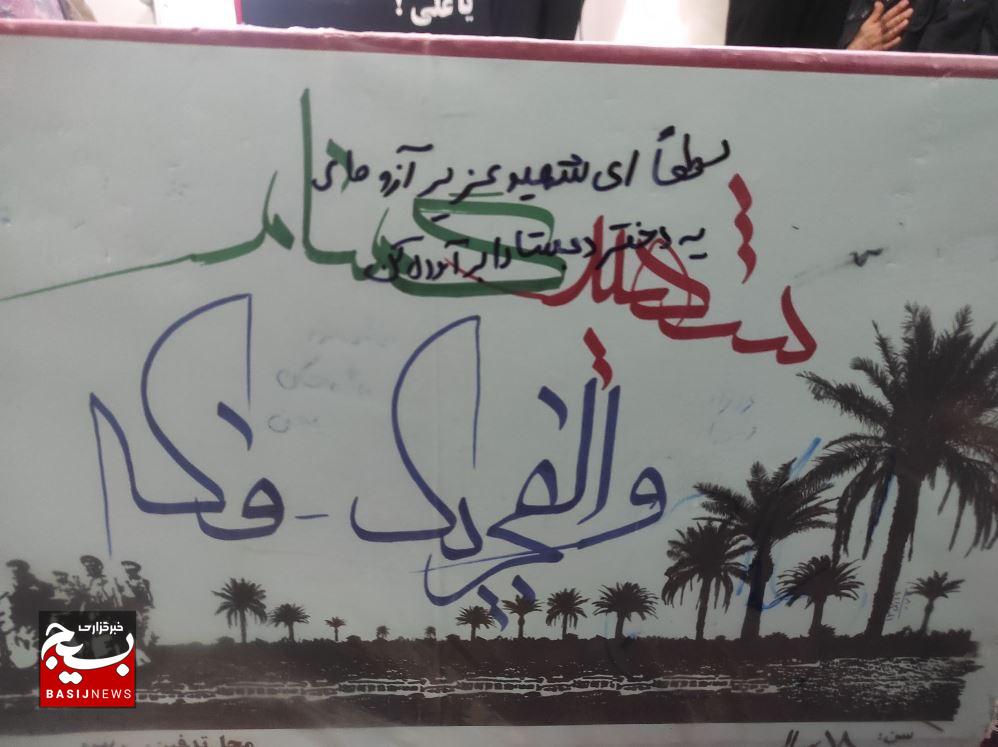 یا علی !
لطفاً ای شهید عزیز آزو های
یه دختر را بر آورده کن
شهید گمنام
والفجر یک - فکه
خبرگزاری
بسیج
BASIJNEWS
سن: ۱۸ سال
محل تدفین